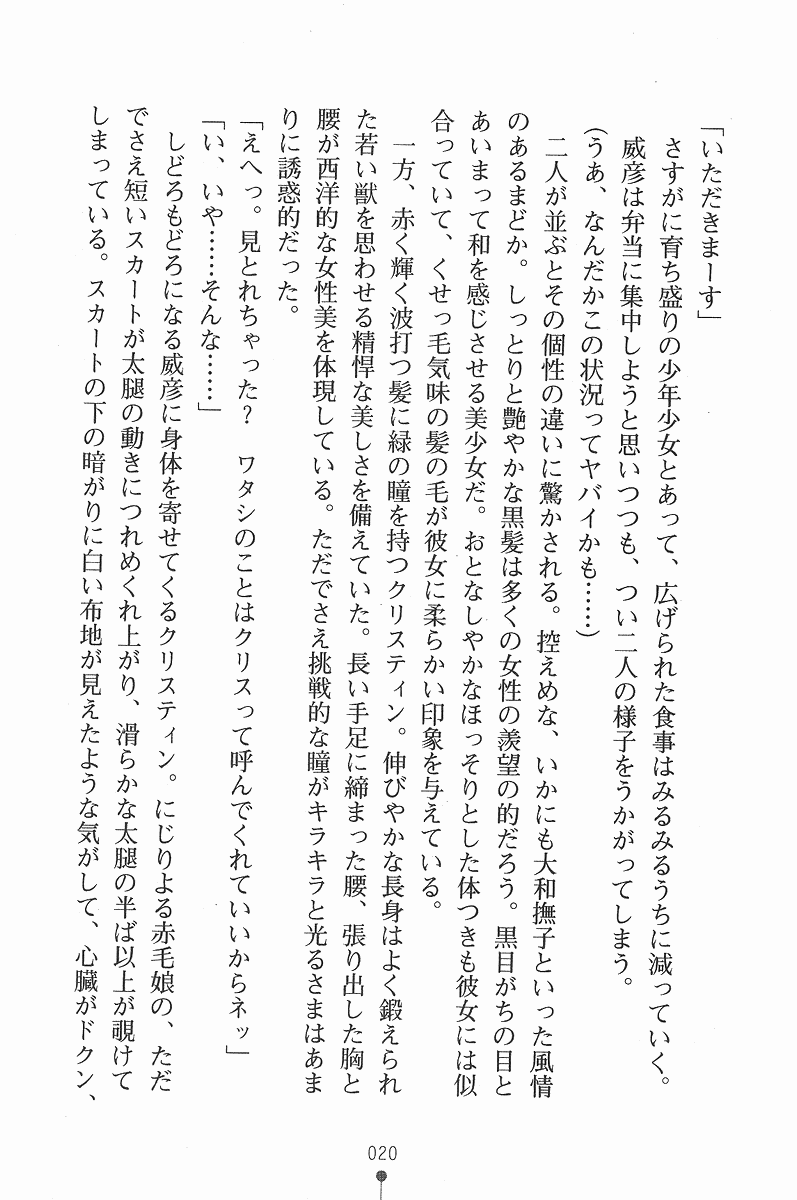 「いただきまーす」
さすがに育ち盛りの少年少女とあって、広げられた食事はみるみるうちに減っていく。
威彦は弁当に集中しようと思いつつも、つい二人の様子をうかがってしまう。
(うあ、なんだかこの状況ってヤバイかも……)
二人が並ぶとその個性の違いに驚かされる。控えめな、いかにも大和撫子といった風情
のあるまどか。しっとりと艶やかな黒髪は多くの女性の羨望の的だろう。黒目がちの目と
あいまって和を感じさせる美少女だ。おとなしやかなほっそりとした体つきも彼女には似
合っていて、くせっ毛気味の髪の毛が彼女に柔らかい印象を与えている。
一方、赤く輝く波打つ髪に緑の瞳を持つクリスティン。伸びやかな長身はよく鍛えられ
た若い獣を思わせる精悍な美しさを備えていた。長い手足に締まった腰、張り出した胸と
腰が西洋的な女性美を体現している。ただでさえ挑戦的な瞳がキラキラと光るさまはあま
りに誘惑的だった。
「えへっ。見とれちゃった？　ワタシのことはクリスって呼んでくれていいからネッ」
「い、いや……そんな……」
しどろもどろになる威彦に身体を寄せてくるクリスティン。にじりよる赤毛娘の、ただ
でさえ短いスカートが太腿の動きにつれめくれ上がり、滑らかな太腿の半ば以上が覗けて
しまっている。スカートの下の暗がりに白い布地が見えたような気がして、心臓がドクン、
020